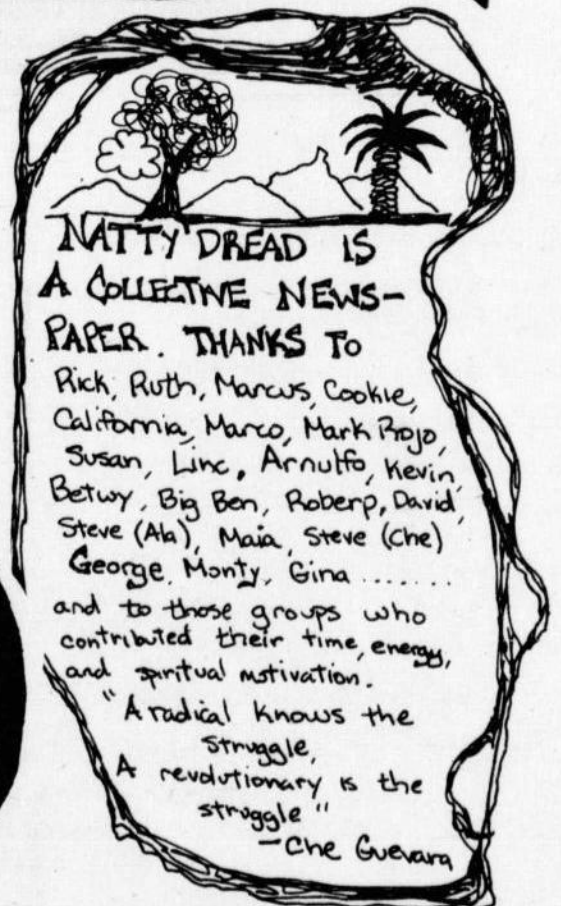 NATTY DREAD IS
A COLLECTIVE NEWS-
PAPER. THANKS TO
Rick, Ruth, Marcus, Cookie,
California, Marco, Mark Rojo,
Susan, Linc, Arnulfo, Kevin,
Betwy, Big Ben, Roberp, David,
Steve (Ala), Maia, Steve (Che)
George, Monty, Gina ........
and to those groups who
contributed their time, energy,
and spiritual motivation.
"A radical knows the
struggle,
A revolutionary is the
struggle"
-Che Guevara